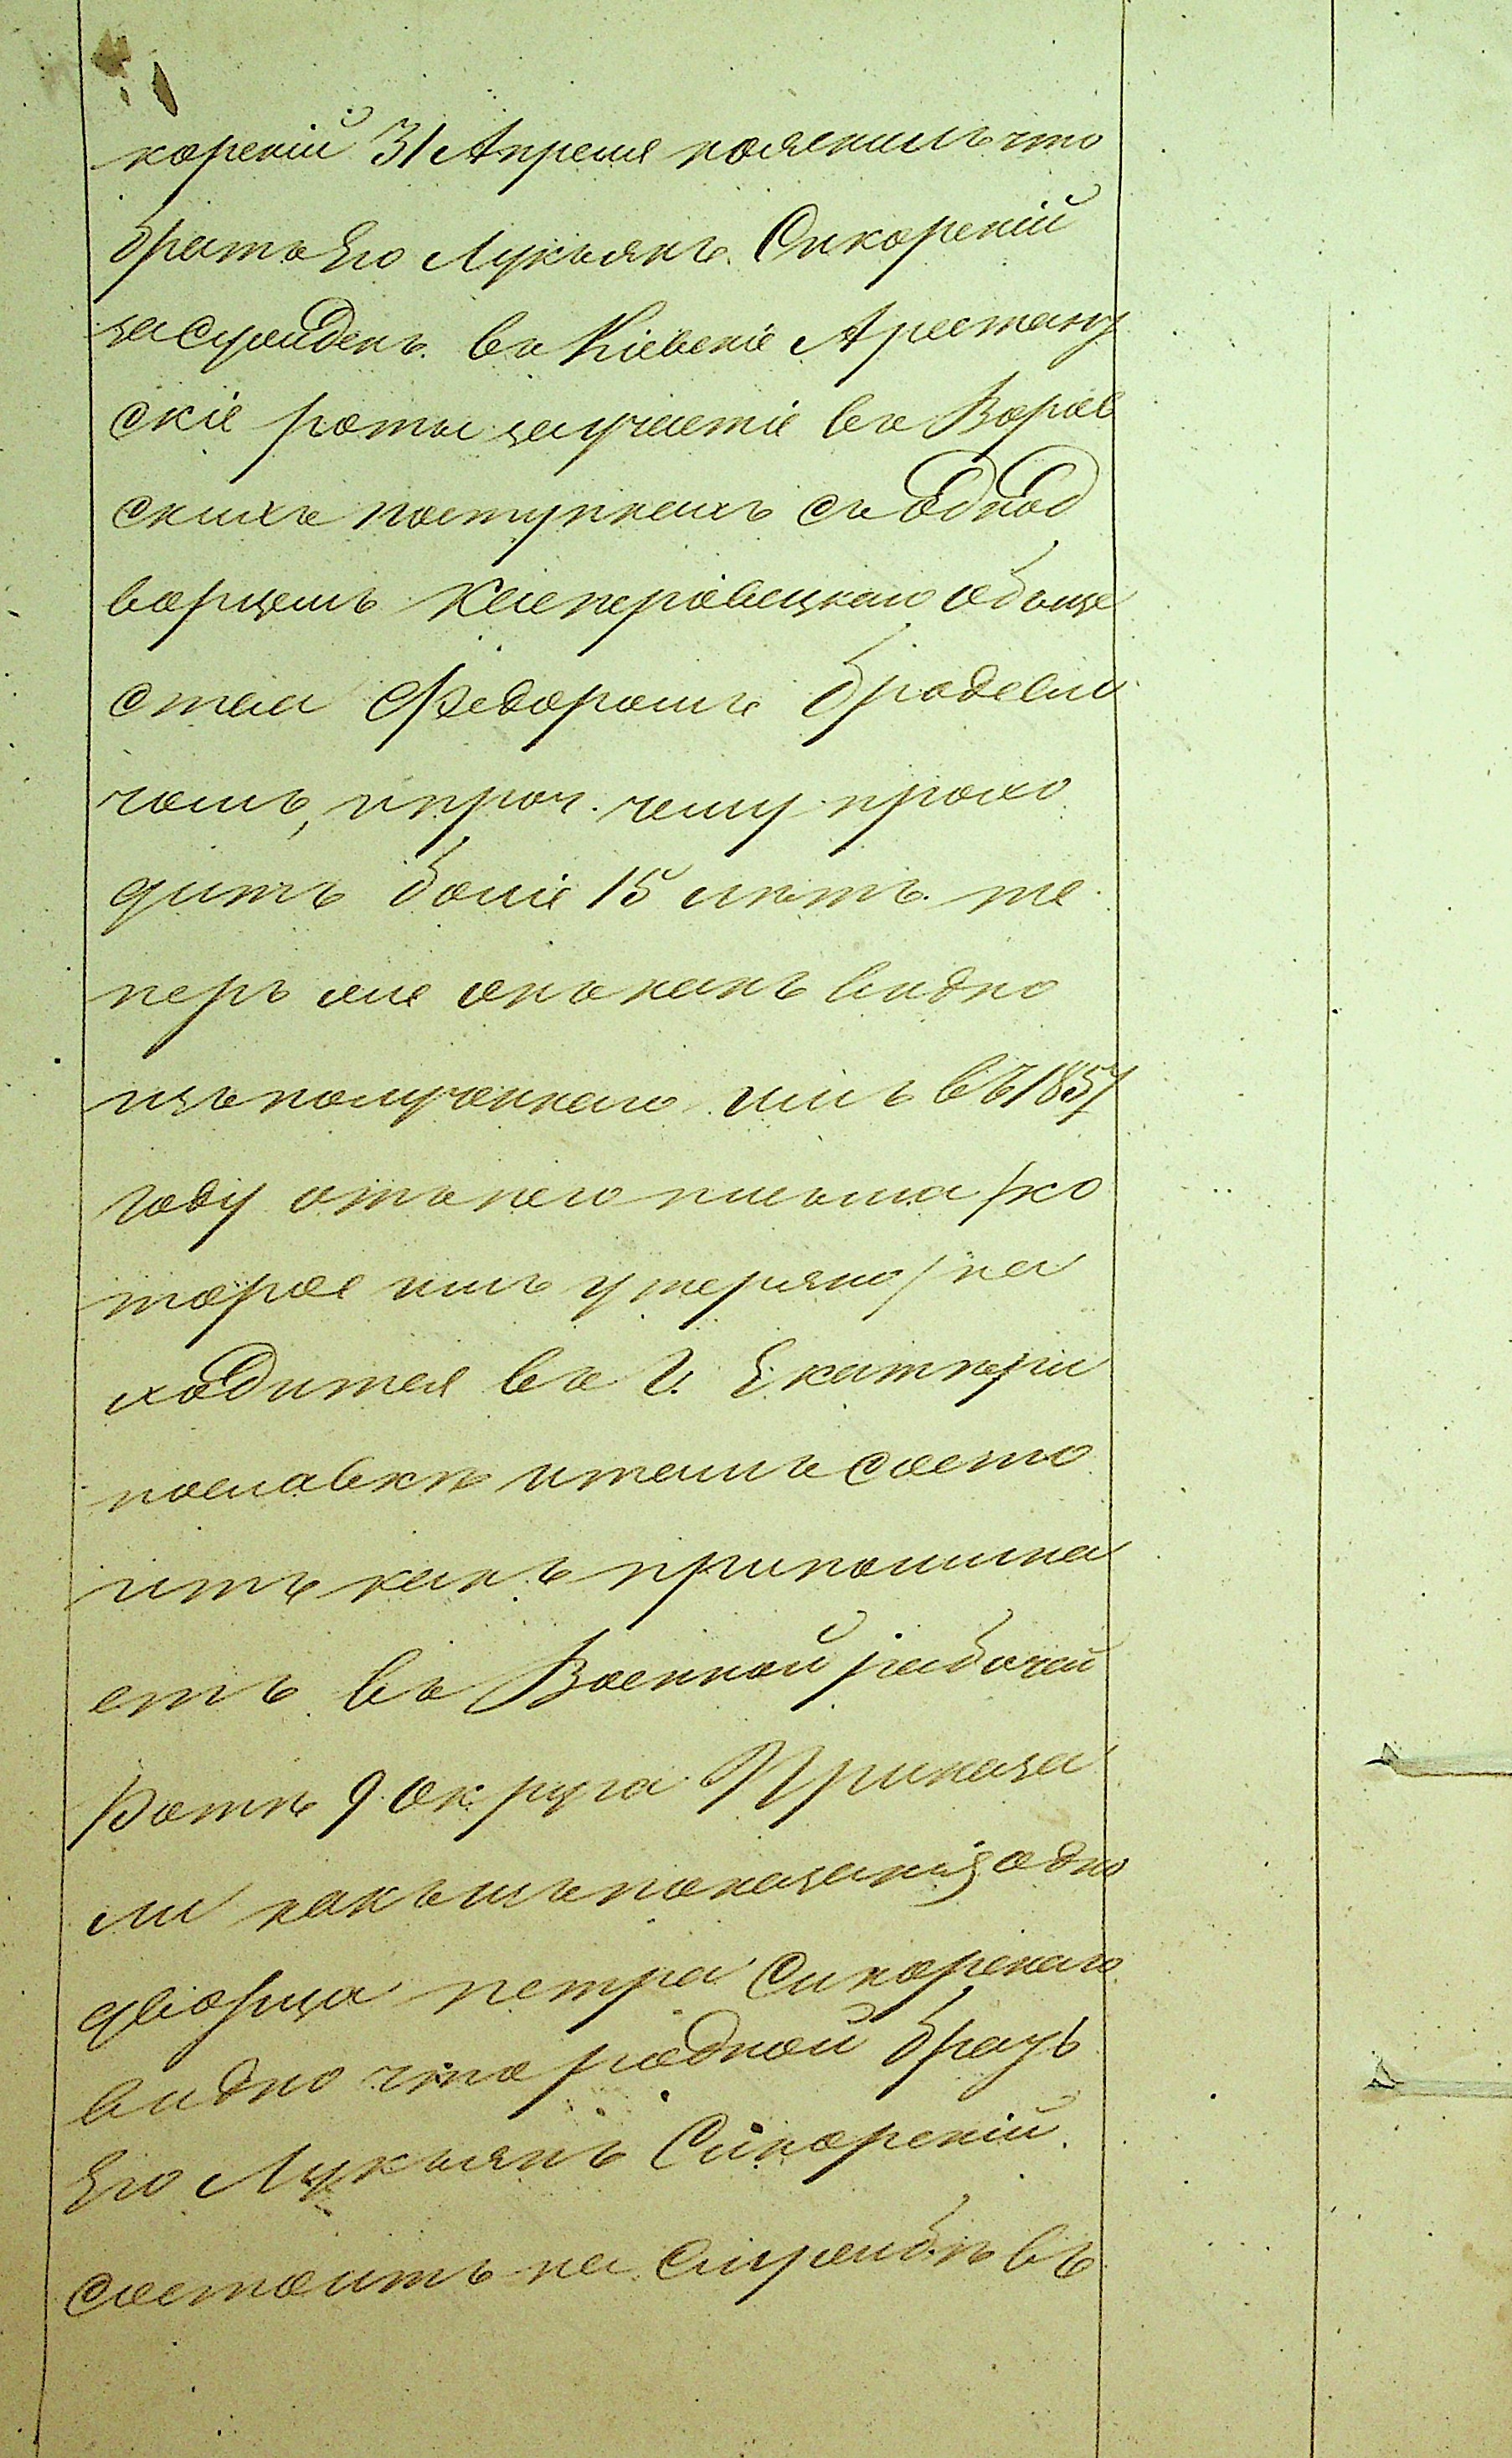 корскій 31 Апреля пояснилъ что
братъ Его Лукьянъ Сикорскій
засужденъ въ Кіевскіе Арестант
скіе роты за участіе въ Воров
скихъ поступкахъ съ Однод
ворцемъ Каспировецкаго обще
ства Федоромъ
чомъ, и проч. чему прохо
дитъ боліе 15 лѣтъ. те
перъ же онъ какъ видно
изъ полученнаго имъ въ 1857
году отъ него письма /ко
торое имъ утеряно/ на
ходится въ Г. Екатери
нославкѣ и тамъ состо
итъ какъ припомина
етъ въ Военной рабочей
Ротѣ 9 округа Приказа
ли какъ изъ показанія одно
дворца петра Сикорскаго
видно что родной братъ
Его Лукьянъ Сикорскій
состоитъ на Службѣ въ